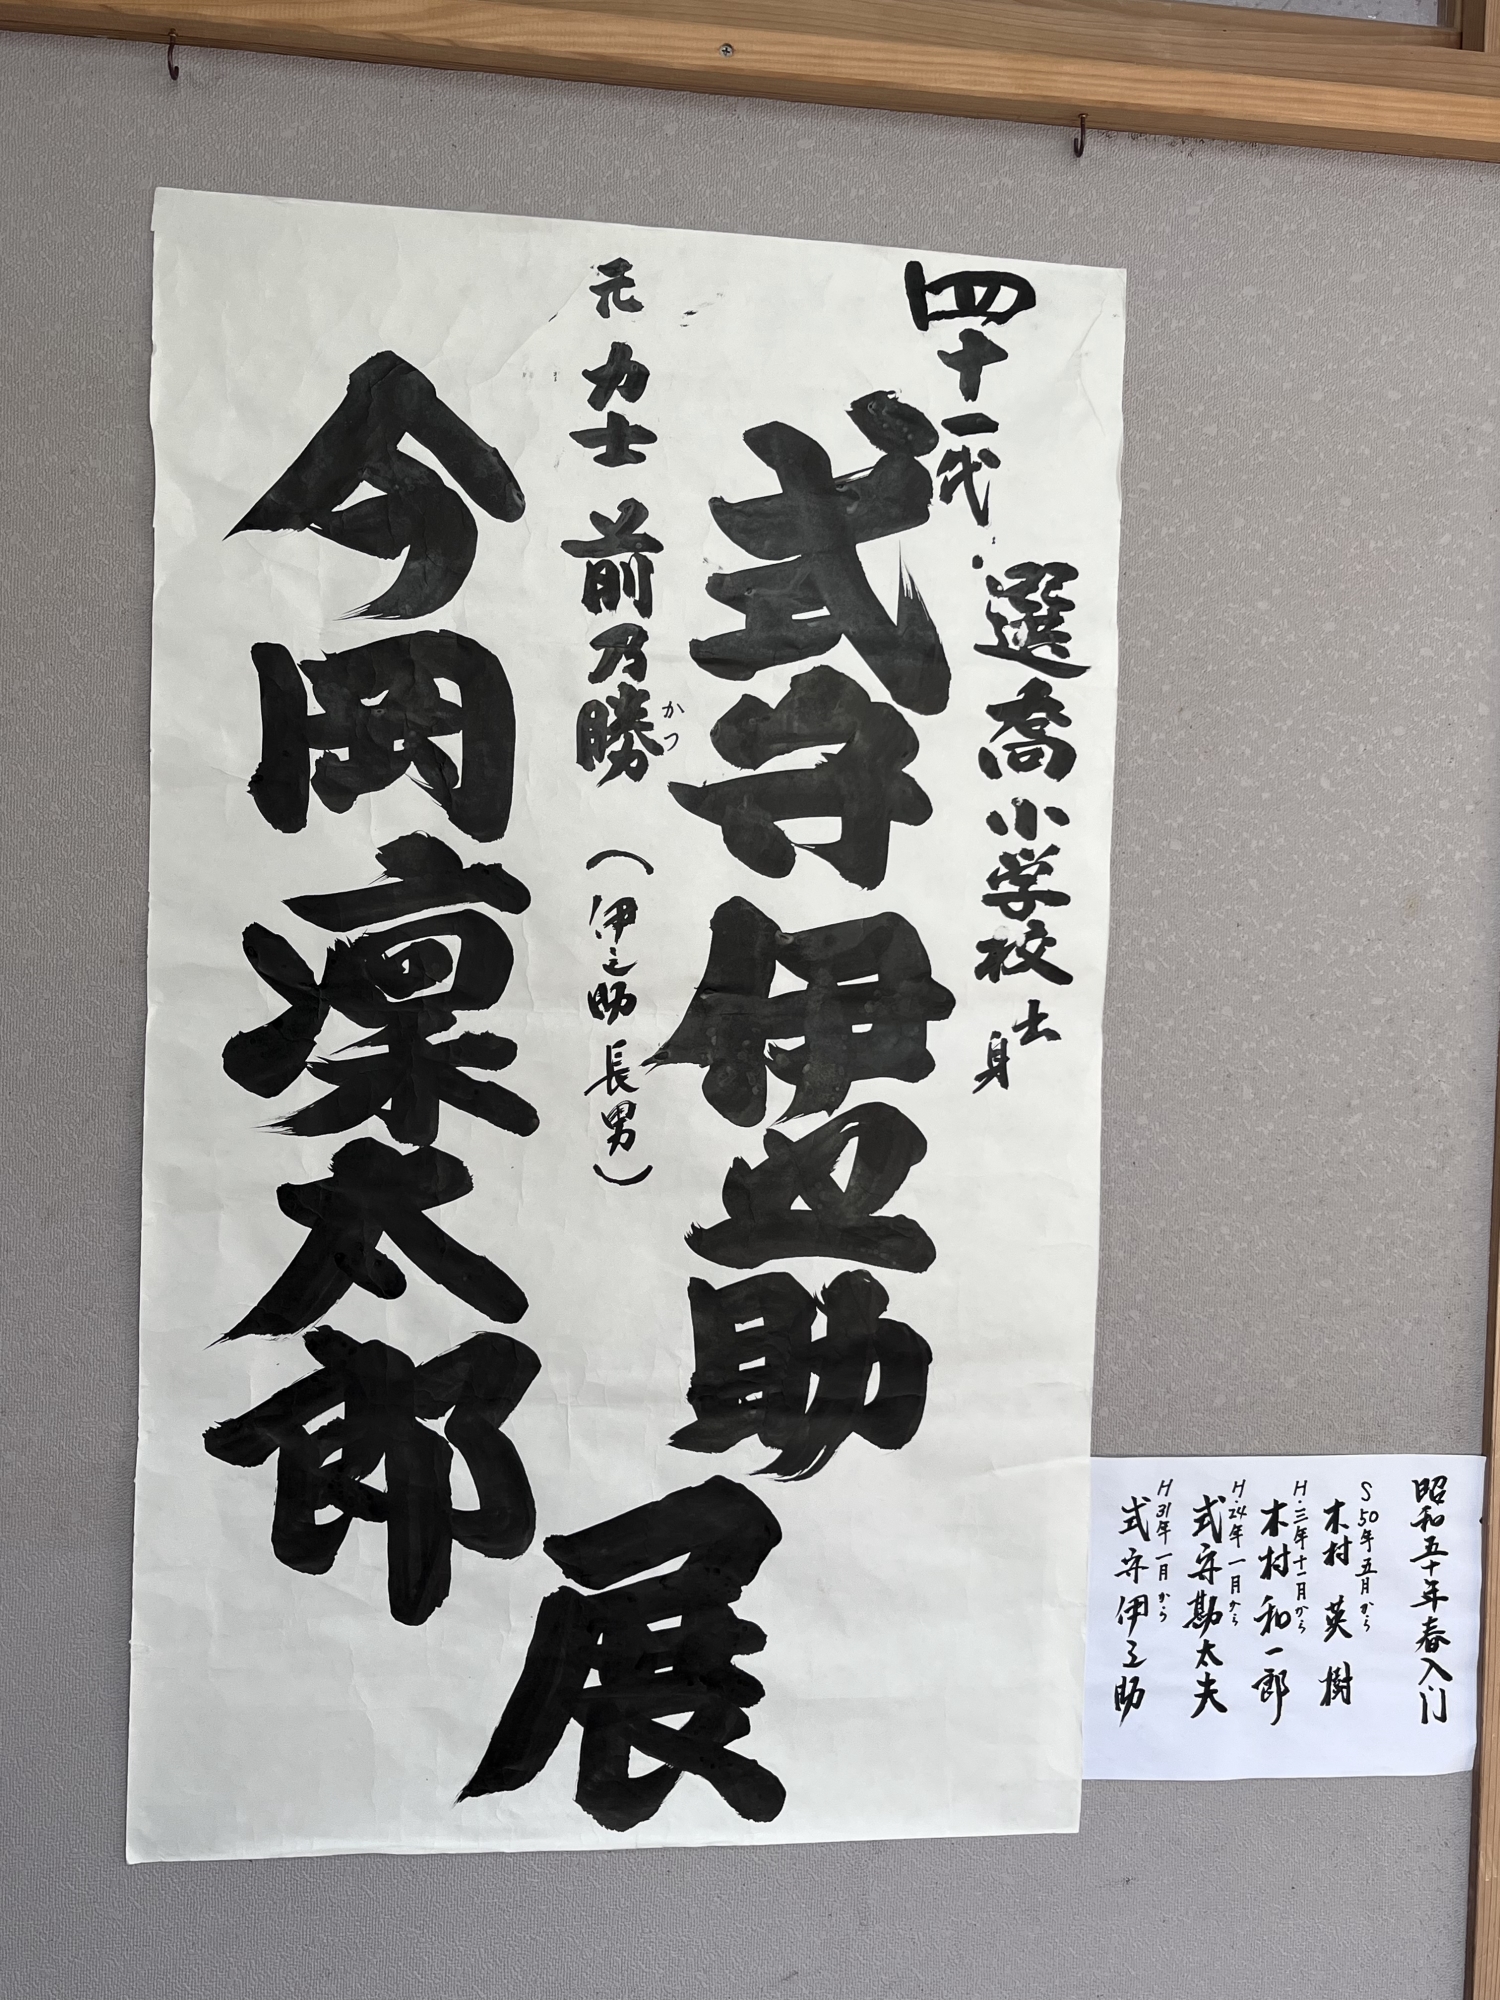 四十一代 選喬小学校出身
式守伊之助
元力士 前乃勝（伊之助長男）
かつ
今岡凛太郎
展
昭和五十年春入门
S50年五月から
木村英樹
H.三年十一月から
木村和一郎
H.24年一月から
式守勘太夫
H31年一月から
式守伊之助